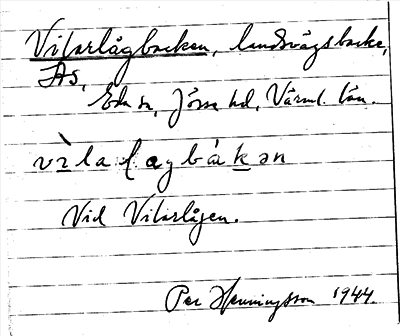 Vilarlågbacken, landsvägsbacke,
Ås,
Eda sn, Jösse hd, Värml. län.
vìlaḷagbákən
Vid Vilarlågen.
Per Henningsson 1944.